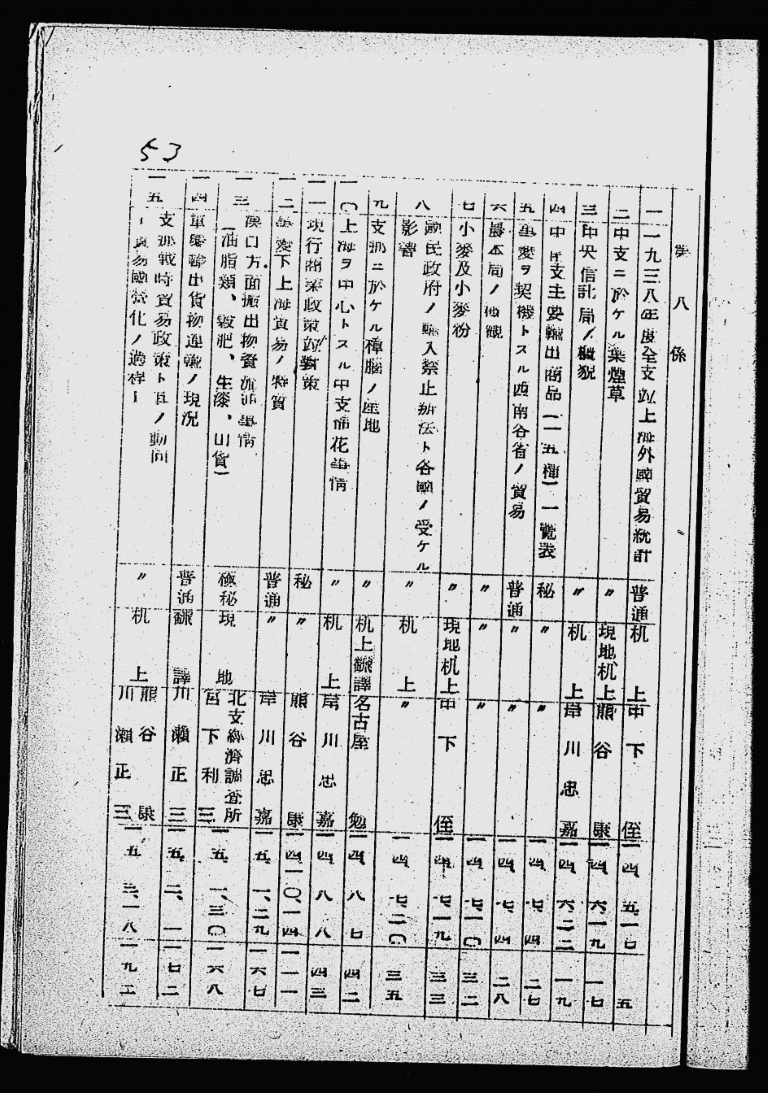 53
第八係
一 一九三八年度全支竝上海外國貿易統計 普通 机上 中下侄 一四、五、一七 五
二 中支ニ於ケル葉煙草 〃 現地机上 熊谷康 一四、六、一九 一七
三 中央信託局ノ概貌 〃 机上 岸川忠嘉 一四、六、二二 一九
四 中支主要輸出商品(一五種)一覽表 秘 〃 〃 一四、七、四 二七
五 事變ヲ契機トスル西南各省ノ貿易 普通 〃 〃 一四、七、四 二八
六 本局ノ 〃 〃 〃 一四、七、一〇 三二
七 小麥及小麥粉 〃 現地机上 中下侄 一四、七、一九 三三
八 國民政府ノ輸入禁止辦法ト各國ノ受ケル
影響 〃 机上 〃 一四、七、二〇 三五
九 支那ニ於ケル樟腦ノ産地 〃 机上飜譯 名古屋勉 一四、八、七 四二
一〇 上海ヲ中心トスル中支棉花事情 〃 机上 岸川忠嘉 一四、八、八 四三
一一 現行商業政策竝對策 秘 〃 熊谷康 一四、一〇、一四 一一一
一二 事變下上海貿易ノ特質 普通 〃 岸川忠嘉 一五、一、二九 一六七
一三 漢口方面搬出物資加油事情
(油脂類、穀肥、生漆、山貨) 極秘 現地 北支經濟調査所
宮下利三 一五、一、三〇 一六八
一四 軍票輸出貨物運輸ノ現況 普通 飜譯 川瀨正三 一五、二、一 一七二
一五 支那戰時貿易政策ト其ノ動向
―貿易國營化ノ過程― 〃 机上 熊谷康
川瀨正三 一五、三、一八 一九二